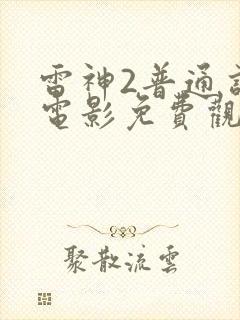 雷神2普通
電影免費觀
聚散流雲